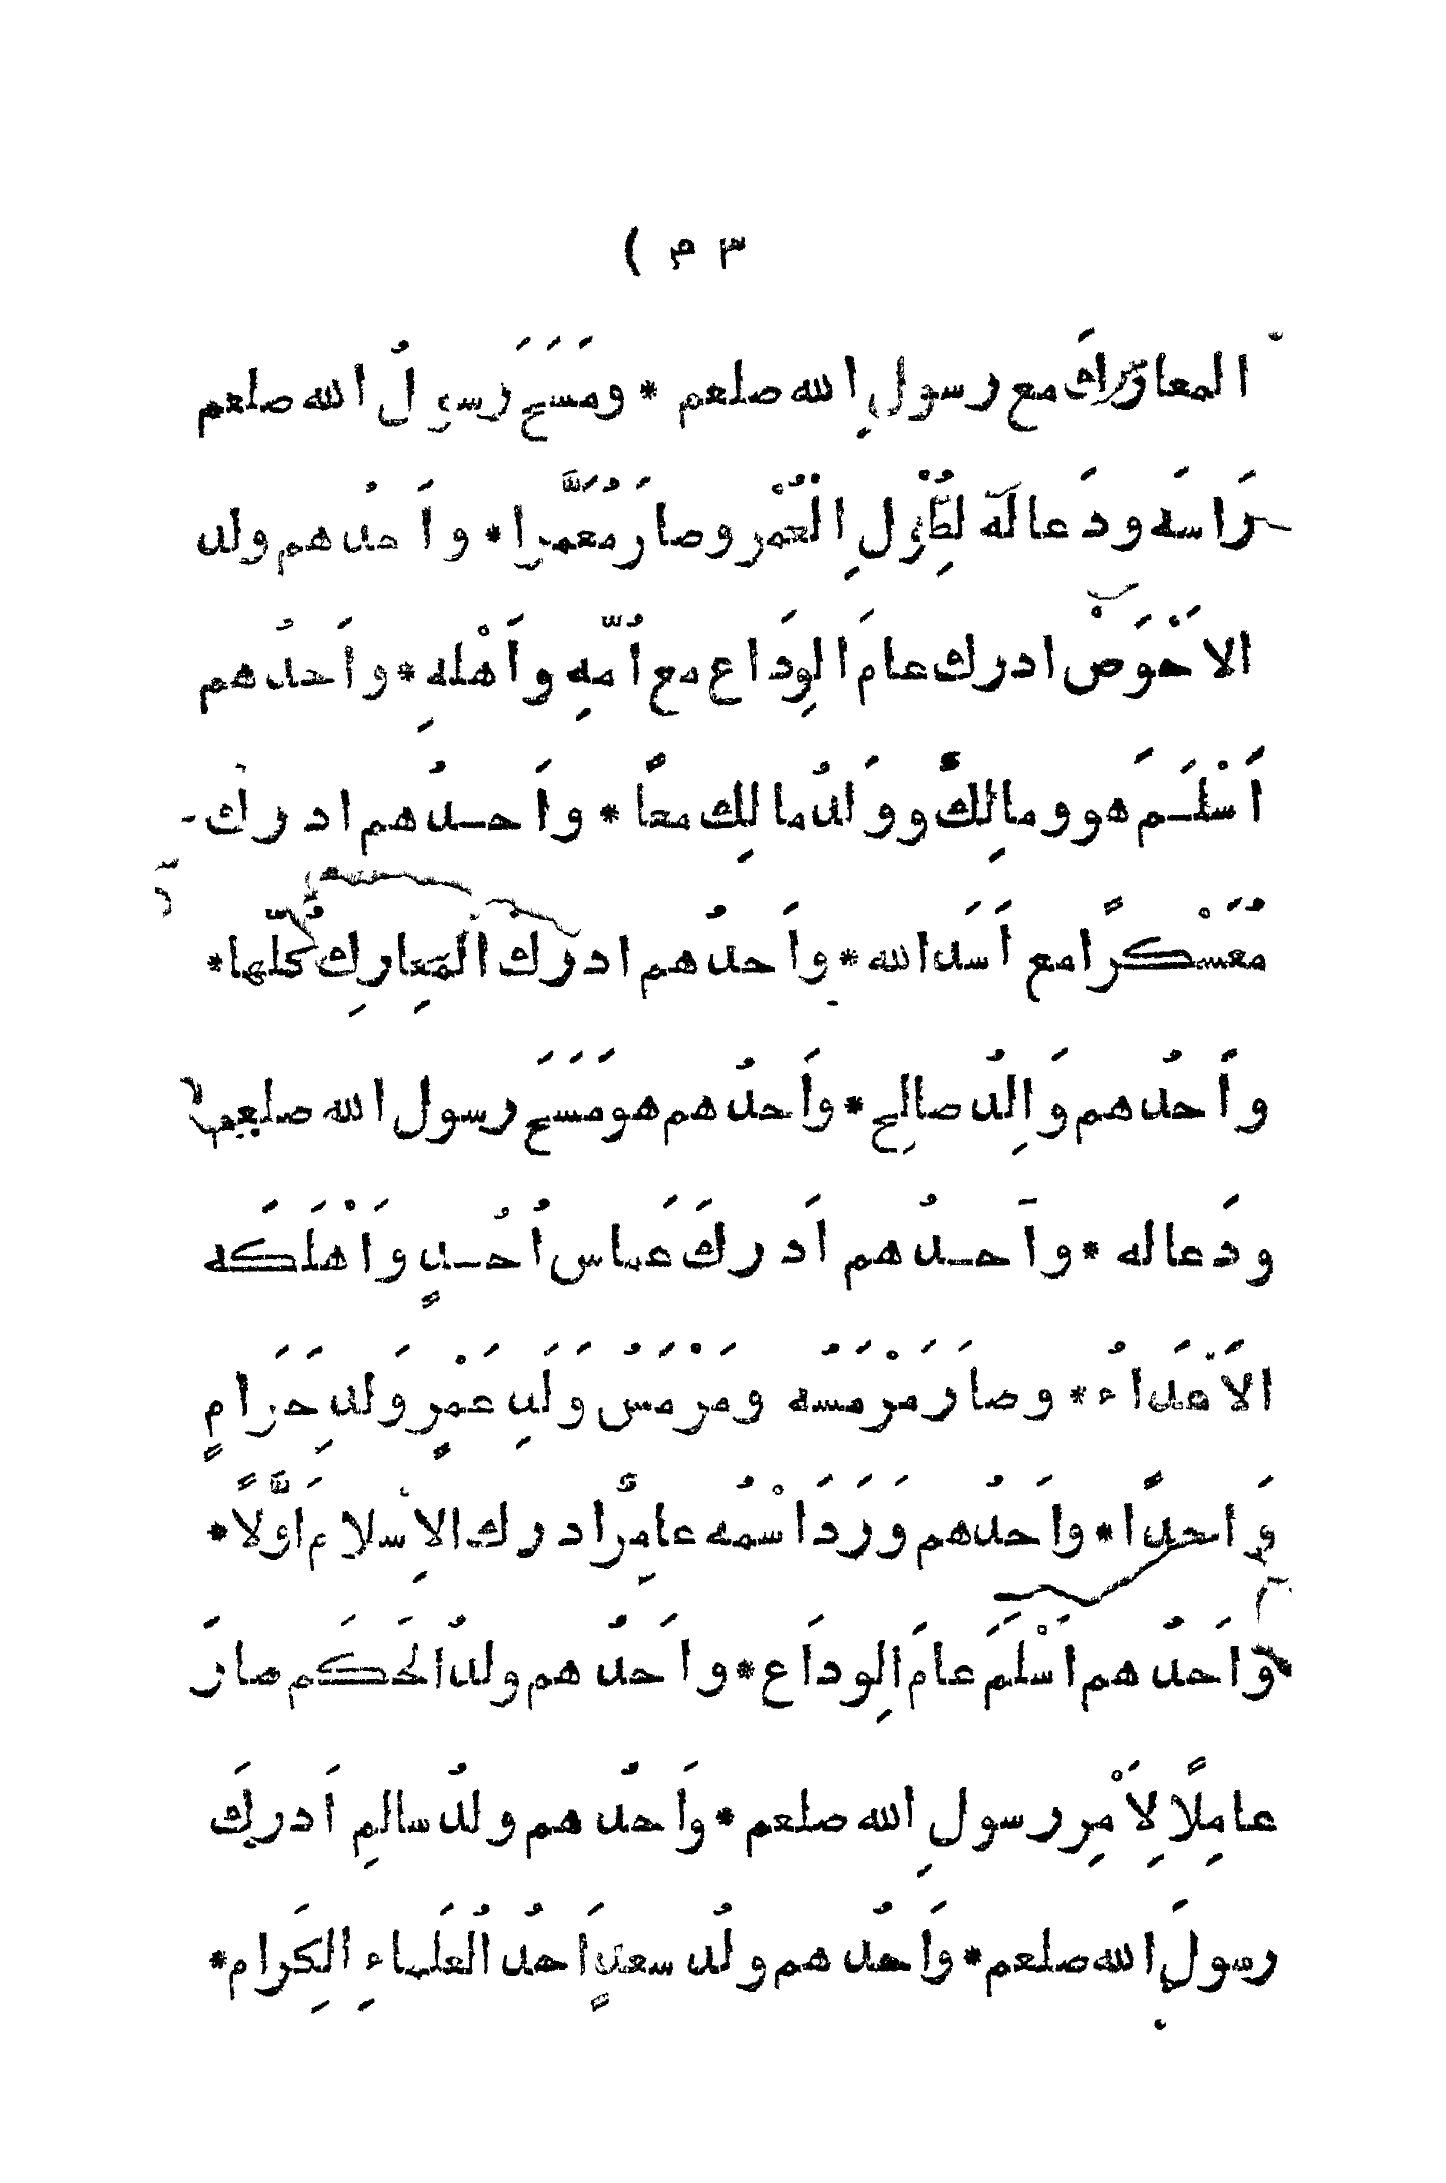 ٣ م )
المعارِكَ مع رسولِ الله صلعم * ومَسَحَ رَسولُ الله صلعم
رَاسَه ودَعا لَهٗ لطُوْلِ الْعُمْرِ وصارَ مُعَمَّرا * واَحدُهم ولد
الاَحْوَصْ ادرك عامَ الوِدَاع مع اُمّهِ واَهْلهِ * واَحدُهم
اَسْلَـمَ هو ومالِكٌ ووَلدُ مالِك معًا * واَحـدُهم ادرك
مُعَسْكرًا مع اَسَد الله * واَحدُهم ادرك المَعارِكِ كُلّها *
واَحدُهم وَالِدُ صالح * واَحدُهم هو مَسَحَ رسول الله صلعم
ودَعا له * واَحـدُهم اَدركَ عَماس اُحُـدٍ واَهْلَكَه
الاَعْداءُ * وصارَ مرْمَسُه ومَرْمَسُ وَلَدِ عَمْرٍ ولَدِ حَرَامٍ
وَاحدًا * واَحدُهم وَرَدَ اسْمُه عامِرٌ ادرك الاِسلام اَوَّلًا *
واَحدُهم اَسْلَمَ عامَ الوِداَع * واَحدُهم ولدُ الحَكَم صارَ
عامِلًا لِاَمْرِ رسولِ الله صلعم * واَحدُهم ولدُ سالمِ اَدركَ
رسولَ الله صلعم * واَحدُهم ولدُ سعدٍ اَحدُ العُلَماءِ الكِرام *